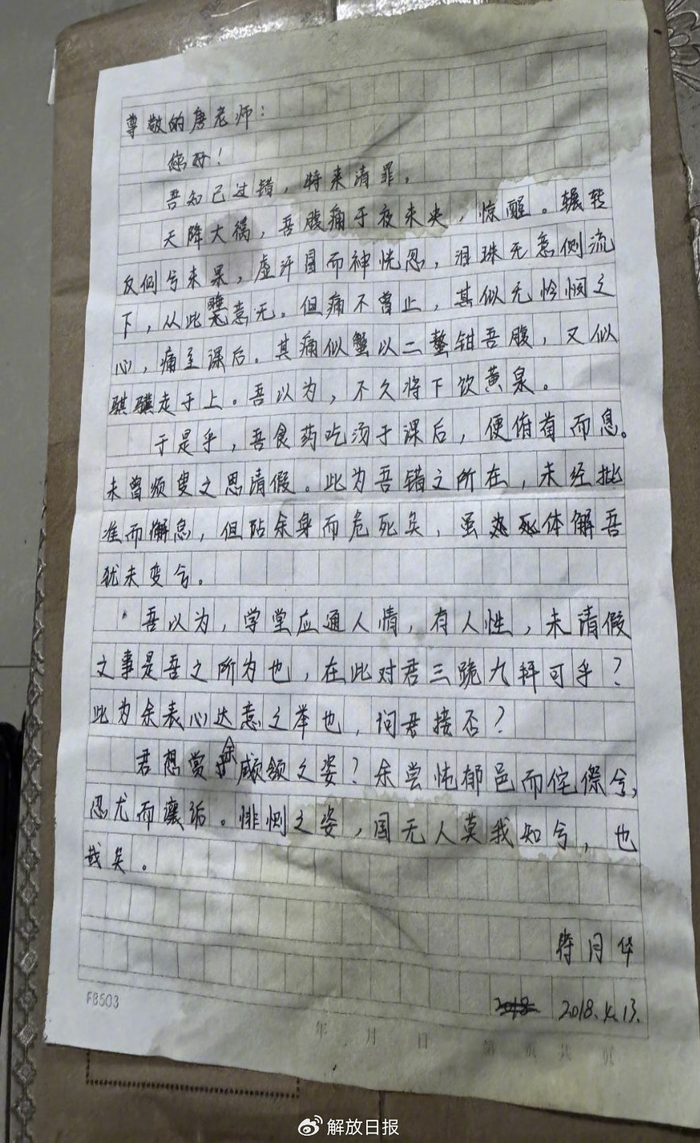 尊敬的唐老师：
您好！
吾知己过错，特来请罪。
天降大祸，吾贱痛于夜未央，惊醒。辗转
反侧兮未果，虚汗冒而神恍忽，泪珠无意侧流
下，从此意无。但痛不曾止，其似无怜悯之
心，痛至课后。其痛似蟹以二螯钳吾腹，又似
骐骥走于上。吾以为，不久将下饮黄泉。
于是乎，吾食药吃汤于课后，便俯首而息。
未曾须叟之思请假。此为吾错之所在，未经批
准而懈怠，但阽余身而危死矣，虽体解吾
犹未变兮。
吾以为，学堂应通人情，有人性，未请假
之事是吾之所为也，在此对君三跪九拜可乎？
此为余表心达意之举也，问君接否？
君想赏余顑颔之姿？余尝忳郁邑而侘傺兮，
忍尤而攘诟。悱恻之姿，国无人莫我知兮，也
哉矣。
蒋月华
2018.4.13.
F8503
年 月 日 第 页 共 页
解放日报